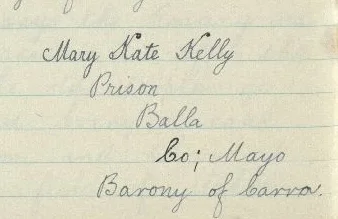 Mary Kate Kelly
Prison
Balla
Co; Mayo
Barony of Carra.